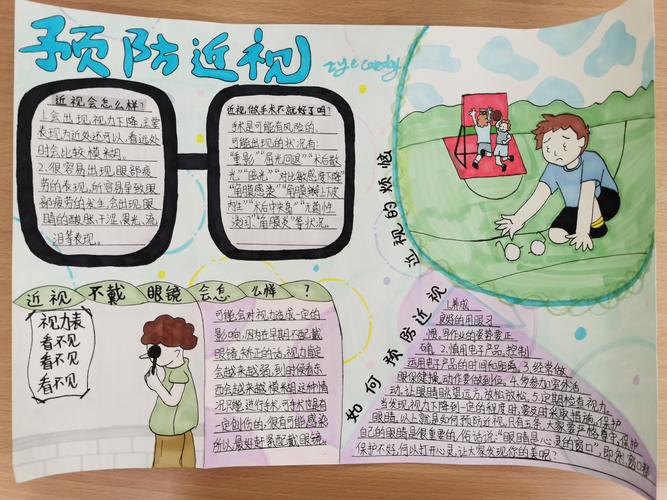 预防近视
近视会怎么样？
1.会出现视力下降，主要
表现为近处还可以，看远处
时会比较模糊。
2.很容易出现眼部疲
劳的表现，所容易导致眼
部疲劳的发生，会出现眼
睛的酸胀、干涩、畏光、流
泪等表现。
近视，做手术不就好了吗？
手术是可能有风险的。
可能出现的状况有：
"重影""屈光回退""术后散
光""眩光""对比敏感度下降"
"角膜感染""角膜瓣上皮
内生""术后中央岛""无菌性
浸润""角膜炎"等状况。
近视的烦恼
近视不戴眼镜会怎么样？
视力表
看不见
看不见
看不见
可能会对视力造成一定的
影响，因为在早期不配戴
眼镜矫正的话，视力肯定
会越来越弱，到时候看东
西会越来越模糊，这种情
况只能进行手术，可手术也是有
一定创伤的，很有可能感染，
所以，最好赶紧配戴眼镜。
如何预防近视
1.养成
良好的用眼习
惯，写作业的姿势要正
确。2.慎用电子产品，控制
运用电子产品的时间和距离。3.经常做
眼保健操，动作要做到位。4.多参加室外活
动，让眼睛眺望远方，放松放松。5.定期检查视力。
当发现视力下降到一定的程度时，要及时采取措施，保护
眼睛。以上就是如何预防近视，只有五条，大家要严格遵守，保护
自己的眼睛是很重要的，俗话说："眼睛是心灵的窗口"，即然窗口都
保护不好，何以打开心灵，让大家发现你的美呢？